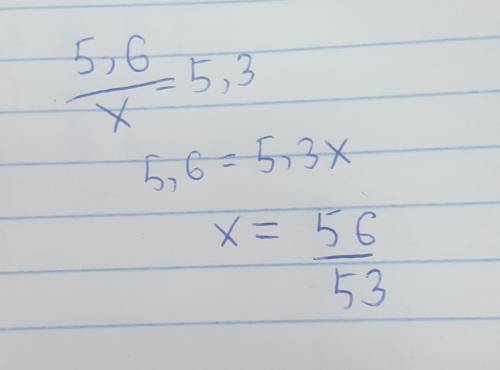 5,6/x = 5,3
5,6 = 5,3x
x = 56/53